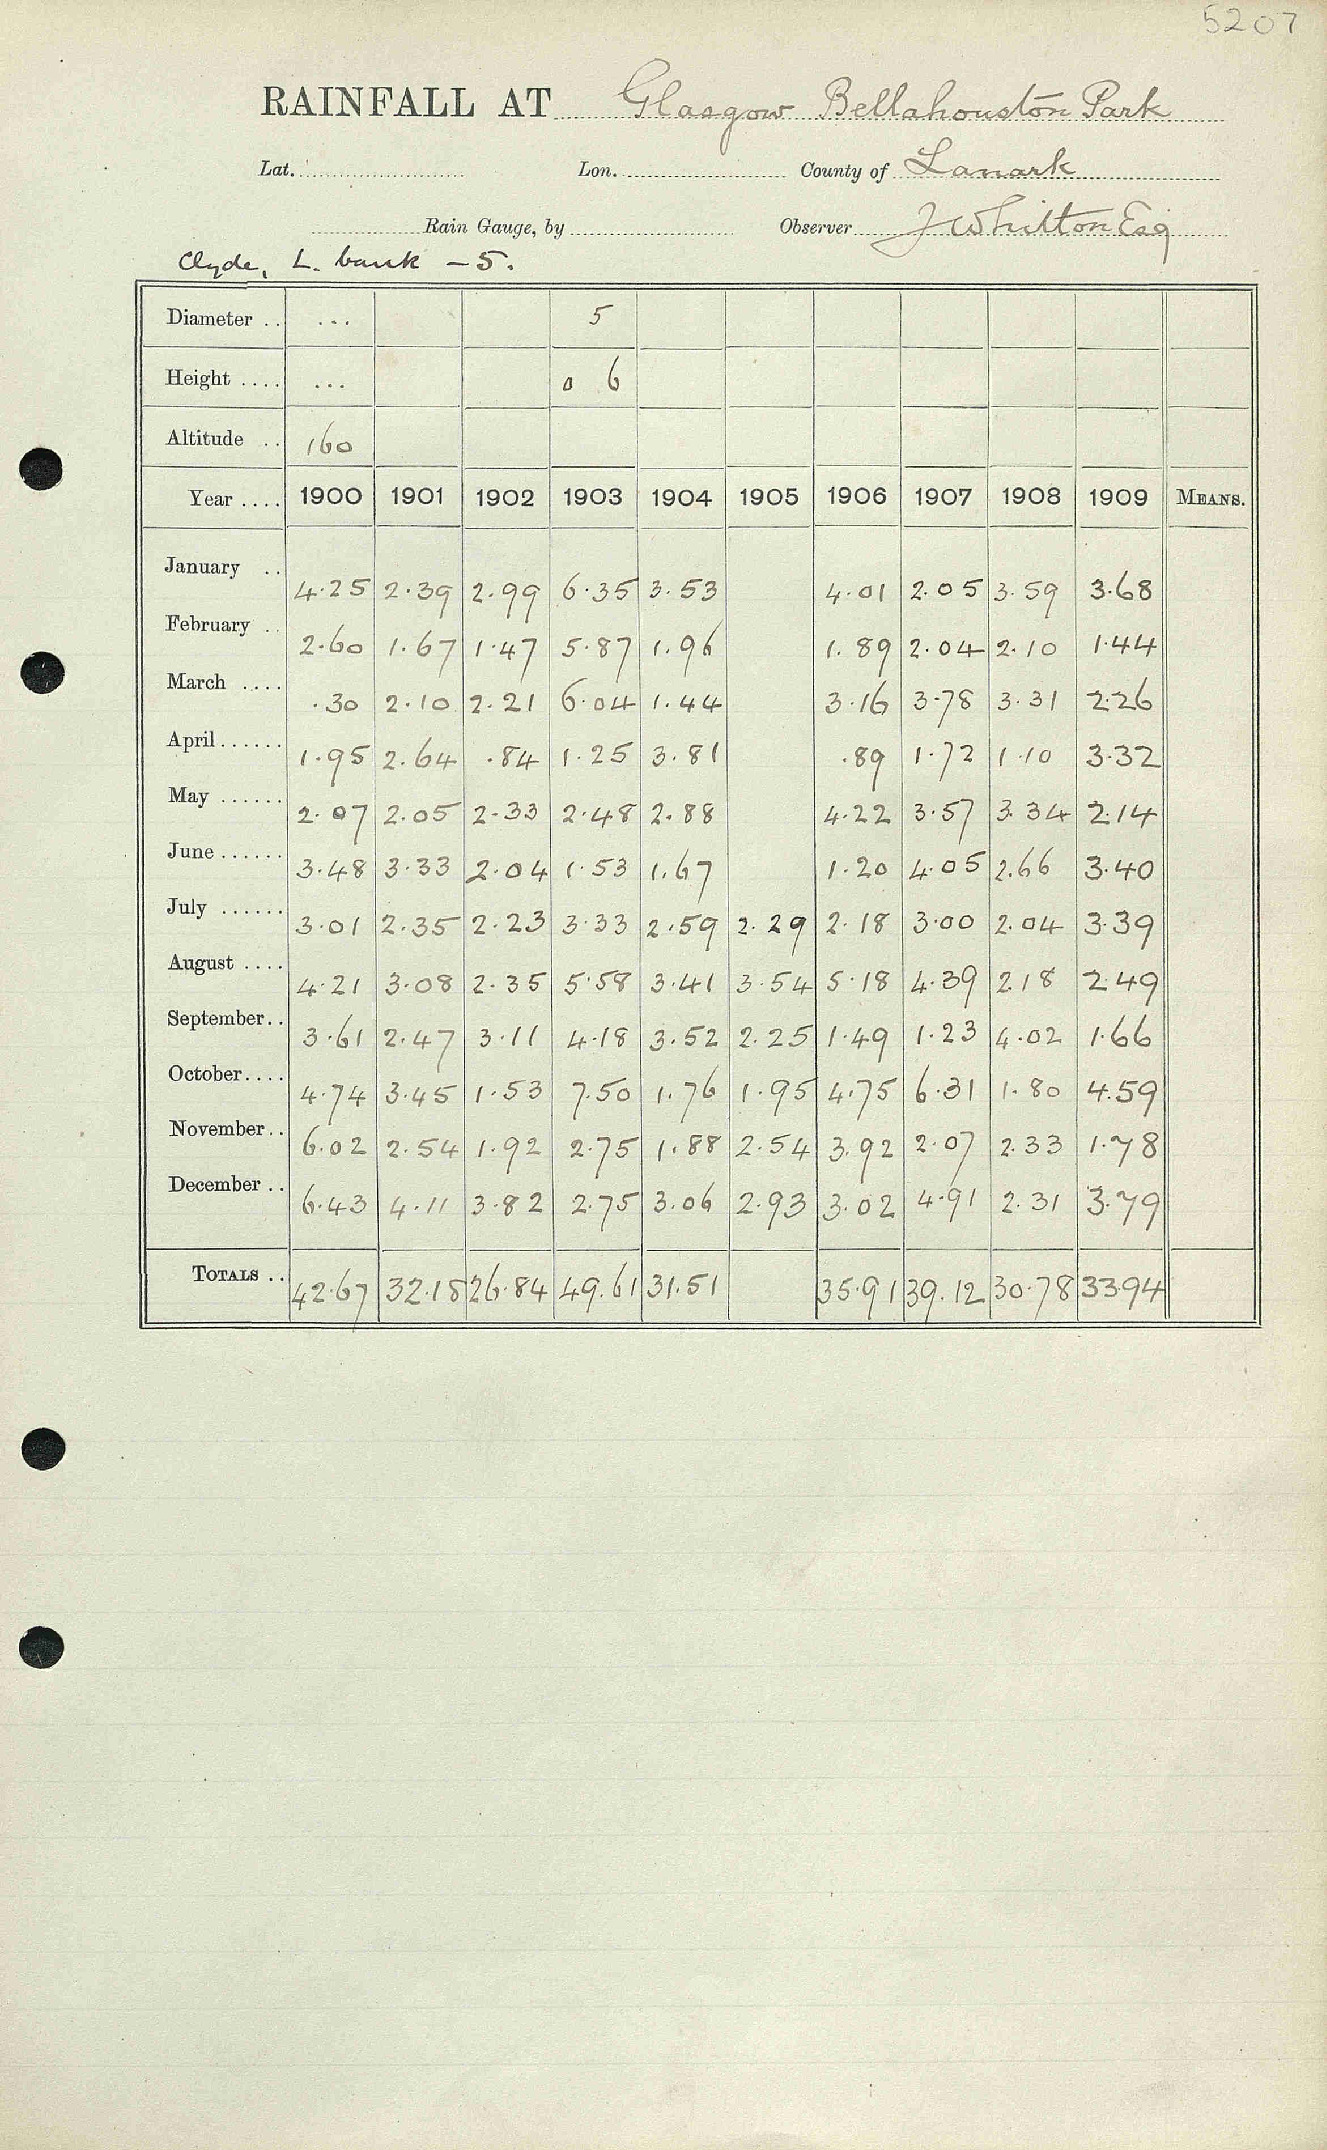 5207
RAINFALL AT Glasgow Bellahouston Park
Lat. Lon. County of Lanark
Rain Gauge, by Observer J Whitton Esq
Clyde, L. bank - 5.
Diameter .. ... 5
Height .... ... 0 6
Altitude .. 160
Year .... 1900 1901 1902 1903 1904 1905 1906 1907 1908 1909 MEANS.
January .. 4.25 2.39 2.99 6.35 3.53 4.01 2.05 3.59 3.68
February .. 2.60 1.67 1.47 5.87 1.96 1.89 2.04 2.10 1.44
March .... .30 2.10 2.21 6.04 1.44 3.16 3.78 3.31 2.26
April...... 1.95 2.64 .84 1.25 3.81 .89 1.72 1.10 3.32
May ...... 2.07 2.05 2.33 2.48 2.88 4.22 3.57 3.34 2.14
June...... 3.48 3.33 2.04 1.53 1.67 1.20 4.05 2.66 3.40
July ...... 3.01 2.35 2.23 3.33 2.59 2.29 2.18 3.00 2.04 3.39
August .... 4.21 3.08 2.35 5.58 3.41 3.54 5.18 4.39 2.18 2.49
September.. 3.61 2.47 3.11 4.18 3.52 2.25 1.49 1.23 4.02 1.66
October.... 4.74 3.45 1.53 7.50 1.76 1.95 4.75 6.31 1.80 4.59
November.. 6.02 2.54 1.92 2.75 1.88 2.54 3.92 2.07 2.33 1.78
December .. 6.43 4.11 3.82 2.75 3.06 2.93 3.02 4.91 2.31 3.79
TOTALS .. 42.67 32.18 26.84 49.61 31.51 35.91 39.12 30.78 33.94